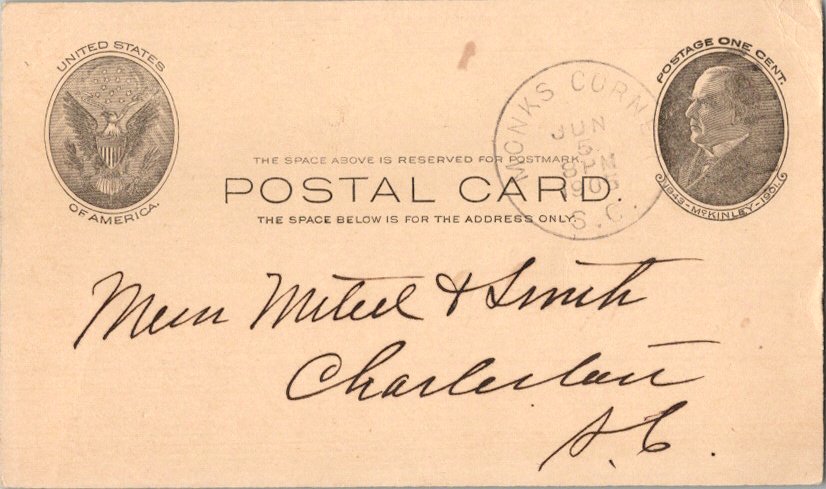 UNITED STATES
OF AMERICA.
POSTAGE ONE CENT.
1843-McKINLEY-1901.
MONKS CORN
JUN
5
8 PM
S.C.
THE SPACE ABOVE IS RESERVED FOR POSTMARK.
POSTAL CARD.
THE SPACE BELOW IS FOR THE ADDRESS ONLY.
& Smith
Charleston
S.C.